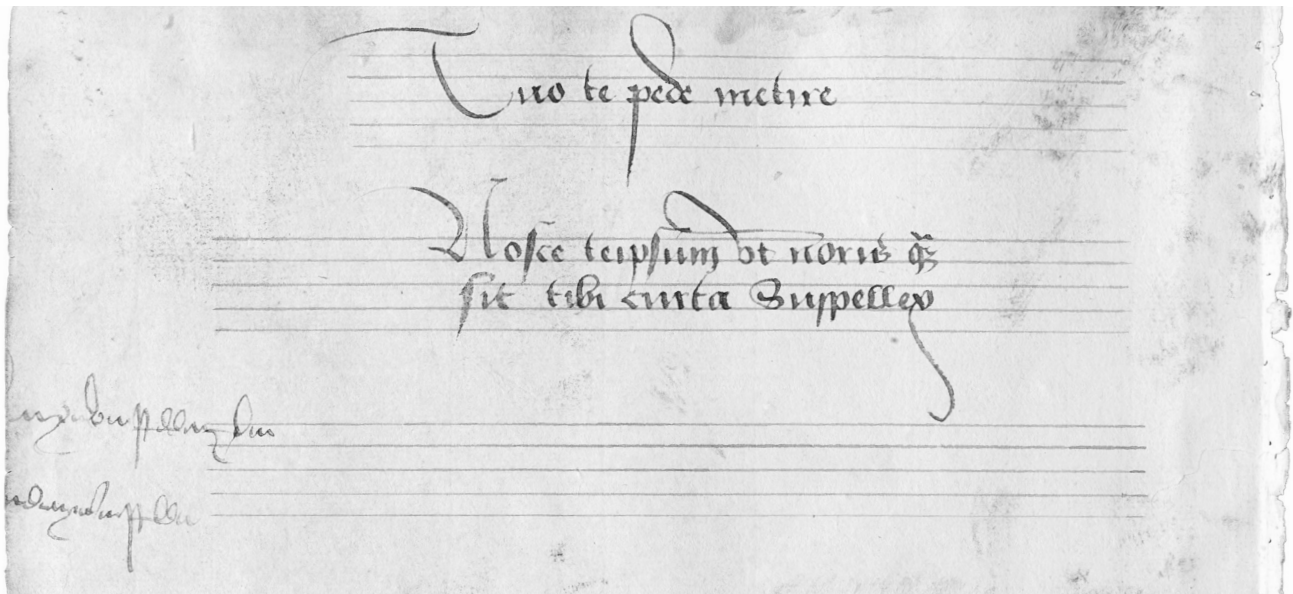 Tuo te pede metire
Nosce teipsum vt noris q̃
sit tibi curta Suppellex